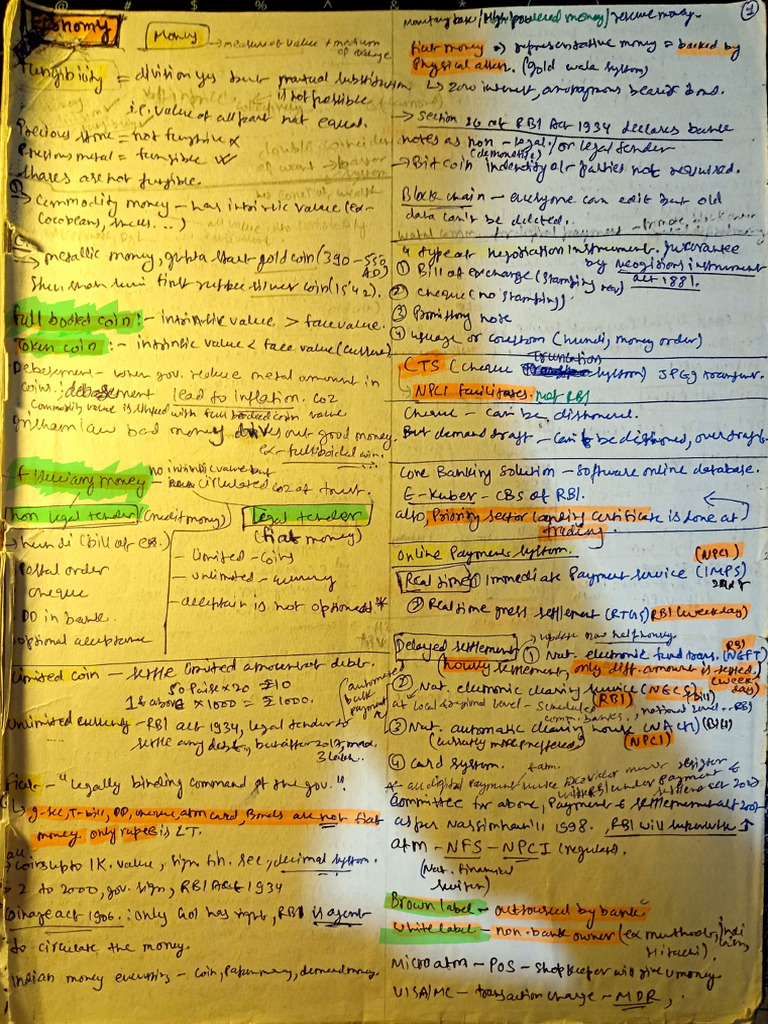 Economy
Money → measure of value + medium of exchange
Fungibility = division yes but mutual substitution is not possible
i.e. value of all part not equal.
Precious stone = not fungible x
Precious metal = fungible
shares are not fungible.
→ Commodity money - has intrinsic value (ex-
Cocobeans, shells...)
→ metallic money, gupta start gold coin (390-550 AD)
Shershah suri first rupee silver coin (1542).
Full bodied coin :- intrinsic value > face value.
Token coin :- intrinsic value < face value (current)
Debasement - when gov. reduce metal amount in
coins. debasement lead to inflation. coz
Commodity value is linked with full bodied coin value
Gresham law bad money drives out good money.
ex- full bodied coin.
Fiduciary money - no intrinsic value but
circulated coz of trust.
Non legal tender (credit money)
→ hundi (bill of ex.)
Postal order
cheque
DD in bank
optional acceptance
Legal tender
(fiat money)
- limited - coins
- unlimited - currency
- acceptance is not optional *
Limited coin - settle limited amount of debt.
50 paise x 20 = ₹10
1 & above x 1000 = ₹1000.
Unlimited currency - RBI act 1934, legal tender to
settle any debt, but after 2017, max
Fiat - "legally binding command of the gov."
↳ g-sec, T-bill, DD, cheque, atm card, Bonds are not fiat
money. only rupee is LT.
→ Coins upto 1K. value, sign fin. sec, decimal system.
→ 2 to 2000, gov. sign, RBI Act 1934
Coinage act 1906 : only GoI has right, RBI is agent
to circulate the money.
Indian money - coin, Paper money, demand money.
1
Monetary base / High powered money / reserve money.
fiat money → representative money = backed by
Physical asset. (gold system)
↳ zero interest, anonymous bearer bond.
→ Section 26 of RBI Act 1934 declares bank
notes as non-legal / or legal tender
(demonetise)
→ Bit coin indentity of parties not required.
Block chain - everyone can edit but old
data can't be deleted.
4 type of negotiation instrument. guarantee
by negotiations instrument
act 1881.
① Bill of exchange (stamping)
② cheque (no stamping)
③ Promissory note
④ usage or custom (hundi, money order)
CTS (cheque truncation system) JPEG
→ NPCI facilitates. not RBI
Cheque - can be dishonered.
But demand draft - can't be dishonered, overdraft
Core Banking solution - software online database.
E-Kuber - CBS of RBI.
also, Priority sector landing certificate is done at
trading.
Online Payments system.
(NPCI)
Real time ① Immediate Payment service (IMPS)
② Real time gross settlement (RTGS) RBI (weekday)
→ update now half hourly
Delayed settlement ① Nat. electronic fund trans. (NEFT) RBI
(hourly settlement, only diff. amount is settled.
(week days)
② Nat. electronic clearing service (NECS) (RBI) (bill)
at local & regional level - scheduled
comm. banks, national level - RBI
③ Nat. automatic clearing house (NACH) (Bill)
(currently more preferred) (NPCI)
(automated bulk payment)
④ card system.
Committee for above, Payment & settlement act 2007
as per Narsimha 1998. RBI will supervise
atm - NFS - NPCI (regulates)
(Nat. Financial
switch)
Brown label - outsourced by bank
White label - non-bank owner (ex muthoot,
Hitachi)
Micro atm - POS - shopkeeper will give u money.
VISA/MC - transaction charge - MDR,